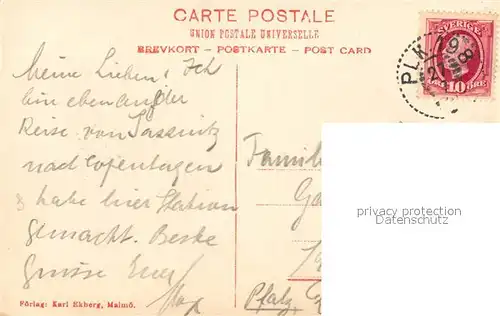 CARTE POSTALE
UNION POSTALE UNIVERSELLE
BREVKORT - POSTKARTE - POST CARD
SVERIGE
10 ÖRE
PLK 198
Meine Lieben! Ich
bin eben auf der
Reise von Sassnitz
nach Copenhagen
& habe hier Station
gemacht. Beste
Grüsse Euer
Max
Famili
Ga
Pfalz,
privacy protection
Datenschutz
Förlag: Karl Ekberg, Malmö.